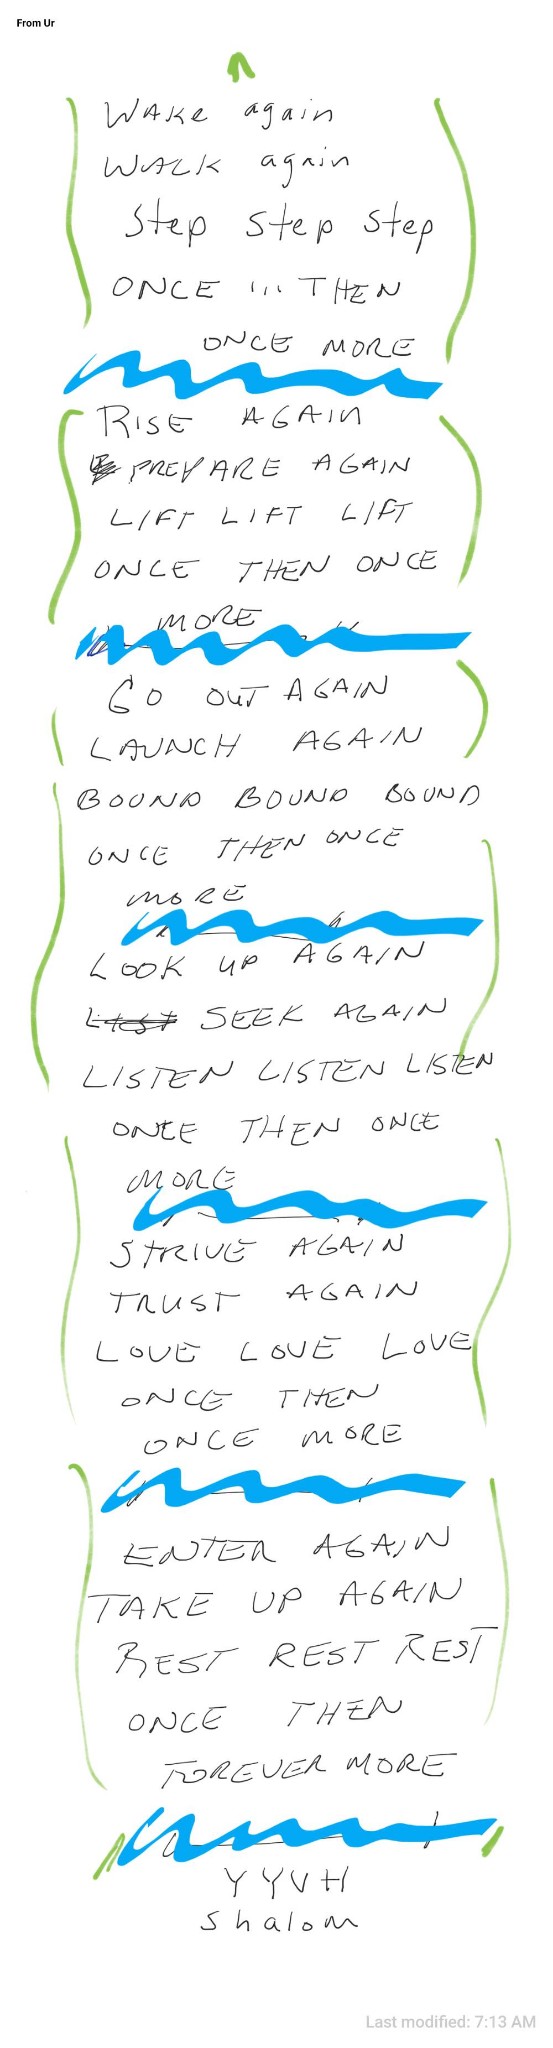 From Ur
Wake again
WALK again
Step Step Step
ONCE ... THEN
ONCE MORE
RISE AGAIN
PREPARE AGAIN
LIFT LIFT LIFT
ONCE THEN ONCE
MORE
GO OUT AGAIN
LAUNCH AGAIN
BOUND BOUND BOUND
ONCE THEN ONCE
MORE
LOOK UP AGAIN
SEEK AGAIN
LISTEN LISTEN LISTEN
ONCE THEN ONCE
MORE
STRIVE AGAIN
TRUST AGAIN
LOVE LOVE LOVE
ONCE THEN
ONCE MORE
ENTER AGAIN
TAKE UP AGAIN
REST REST REST
ONCE THEN
FOREVER MORE
YYVH
Shalom
Last modified: 7:13 AM